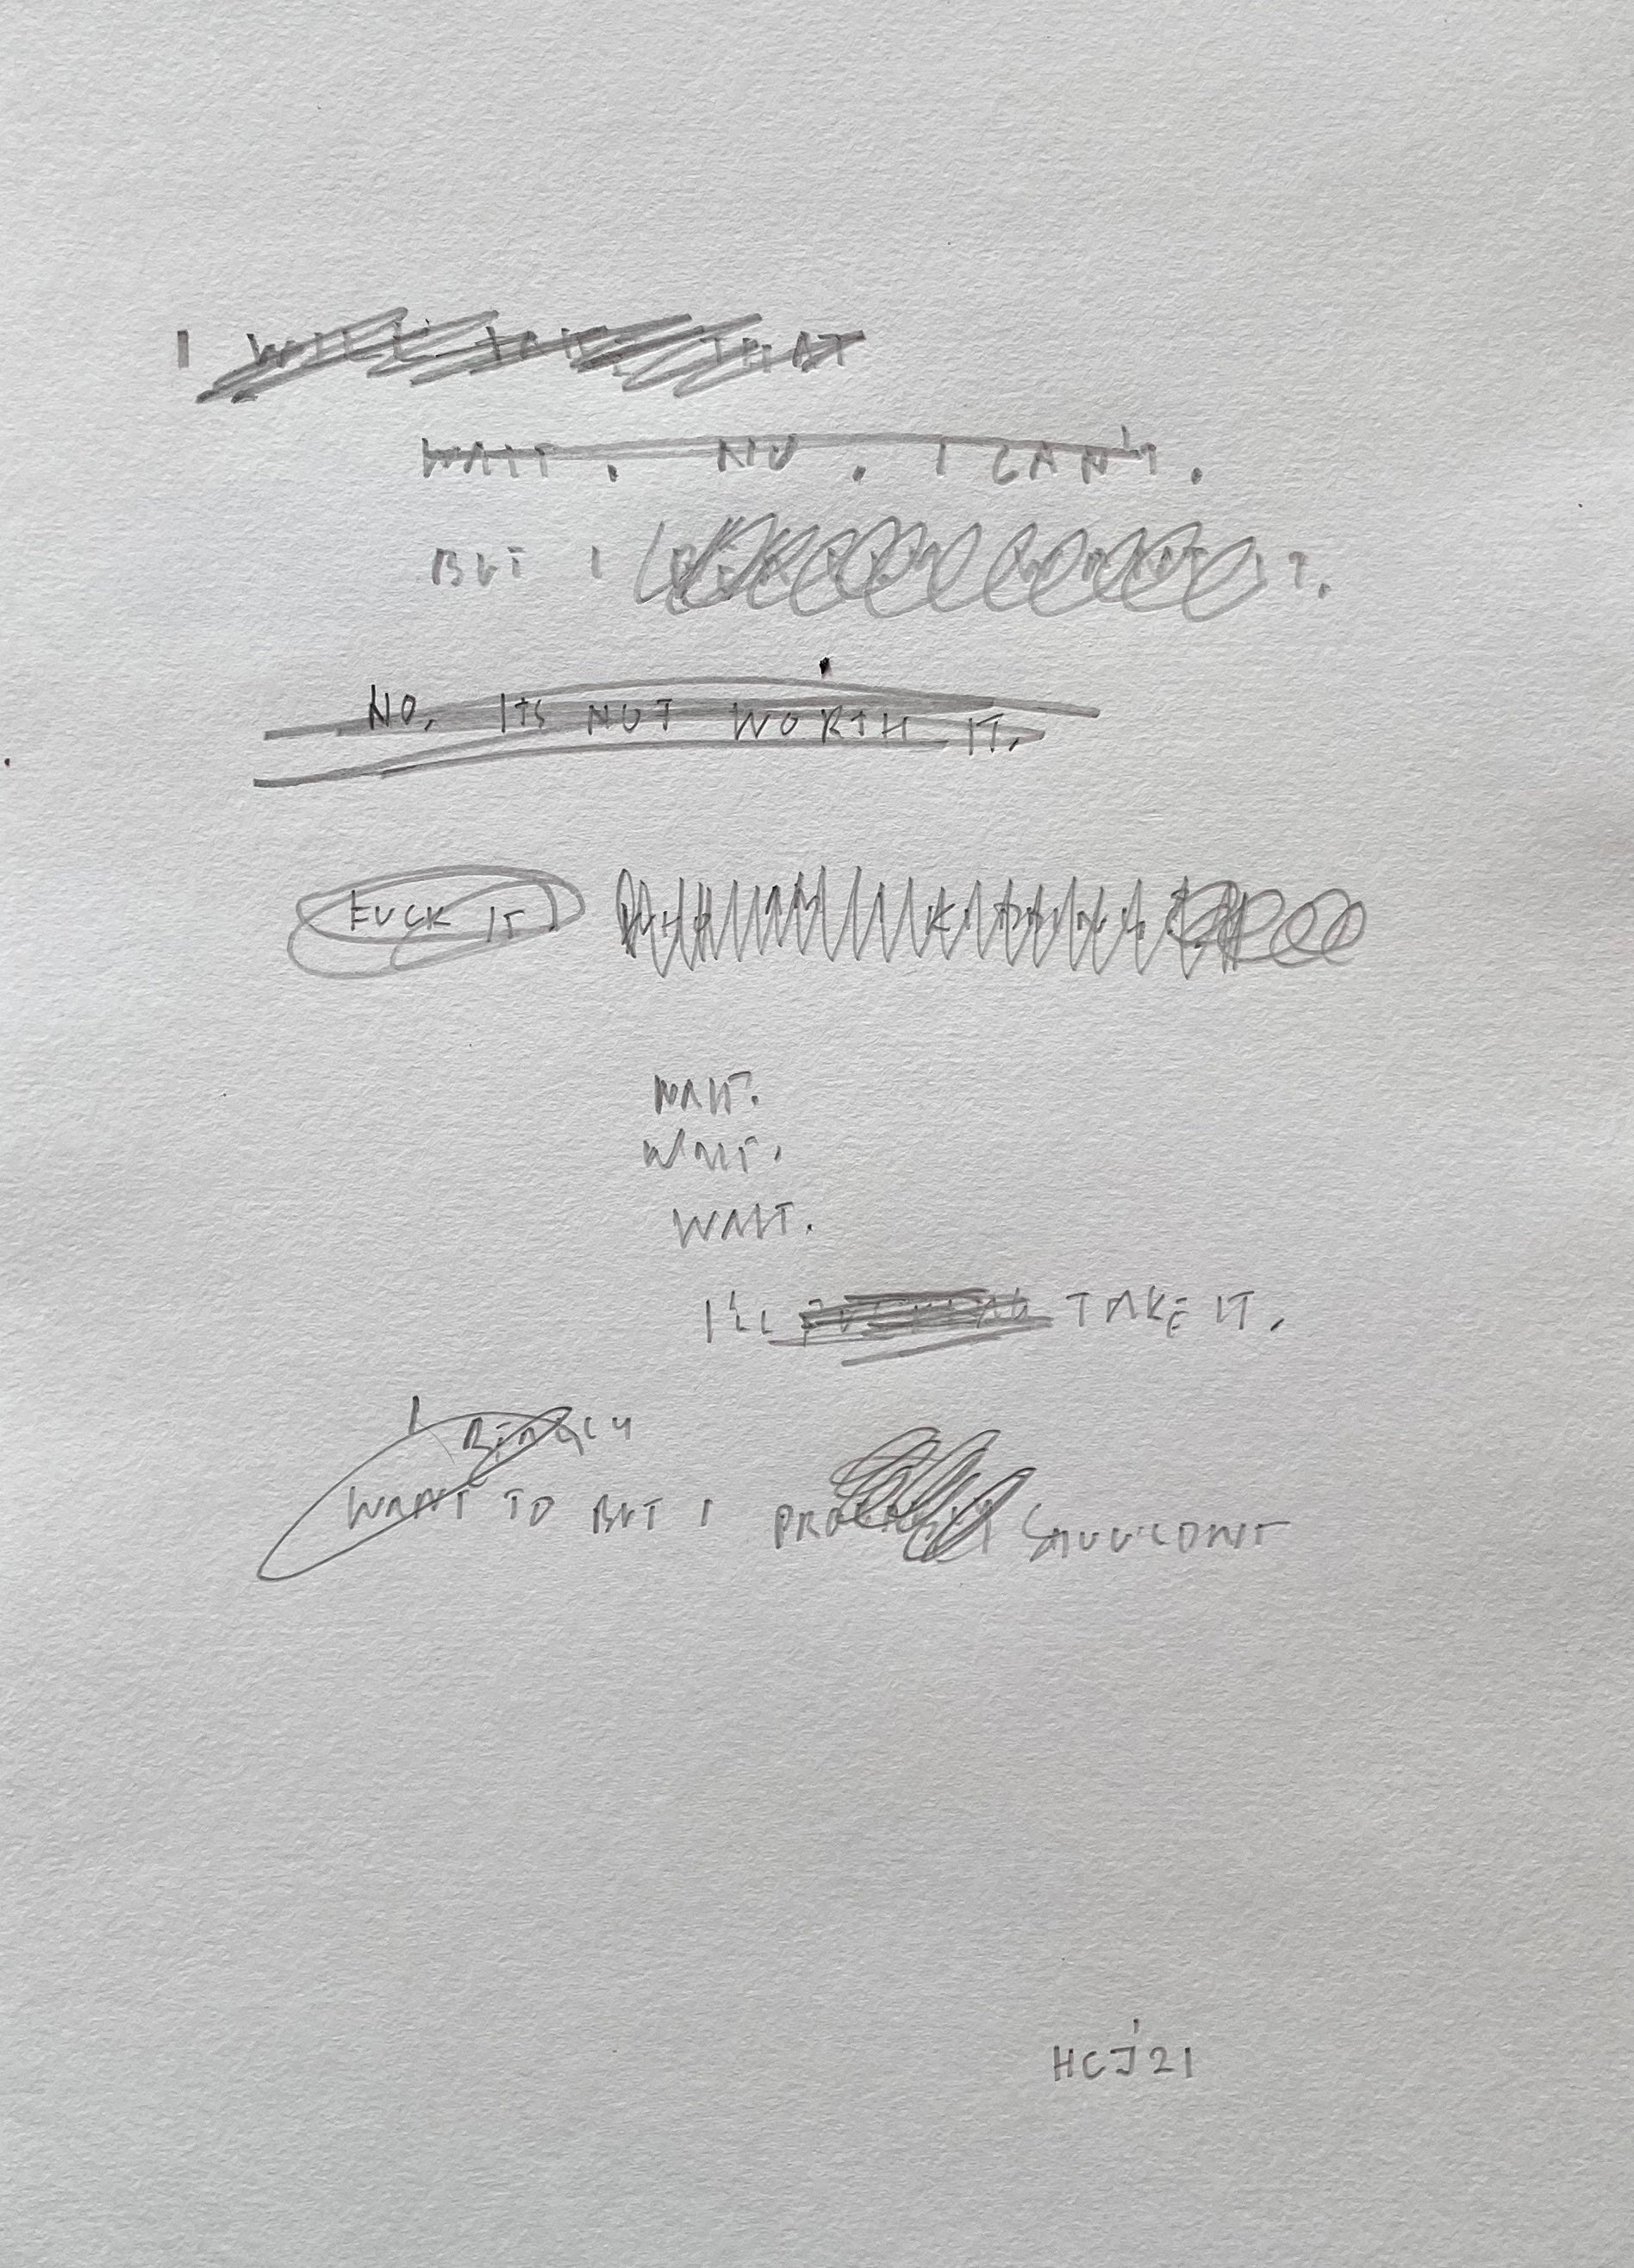 I WILL TAKE THAT
WAIT. NO. I CAN'T.
BUT I IT.
NO, ITS NOT WORTH IT.
FUCK IT
WAIT.
WAIT.
WAIT.
I'LL FUCKING TAKE IT.
I REALLY
WANT TO BUT I PROBABLY SHOULDNT
HCJ'21